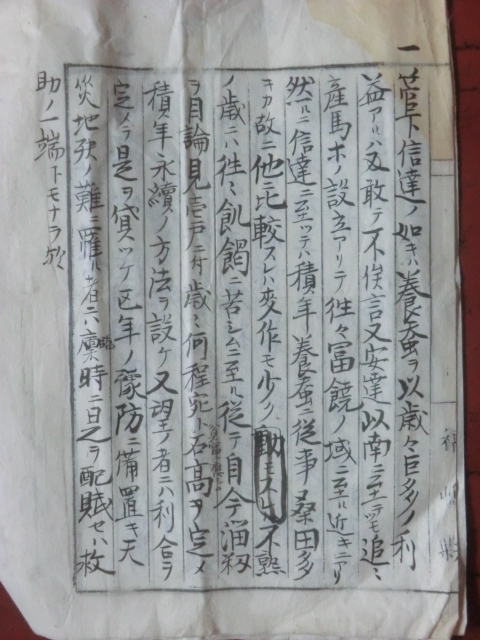 一 菅下信達ノ如キハ養蚕ヲ以歳々巨多ノ利
益アルハ又敢テ不俟言又安達以南ニ至テモ追々
産馬ホノ設立アリテ往々富饒ノ域ニ至ル近キニアリ
然ルニ信達ニ至ッテハ積年養蚕ニ従事桑田多
キカ故ニ他ニ比較スレハ麦作モ少ク動モスレハ不熟
ノ歳ニハ往々飢餲ニ苦シムニ至ル従テ自今溜籾
ヲ目論見壱戸ニ付歳々何程宛ト石高ヲ定メ
積年永續ノ方法ヲ設ケ又望ノ者ニハ利合ヲ
定メテ是ヲ貸ツケ凶年ノ豫防ニ備置キ天
災地殃ノ難ニ罹ル者ニハ臨時ニ日之ヲ配賦セハ救
助ノ一端トモナラン歟